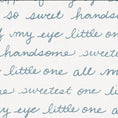 so sweet handso
f my eye little one
handsome sweete
t little one all m
e sweetest one li
appy of my eye
my eye little one a